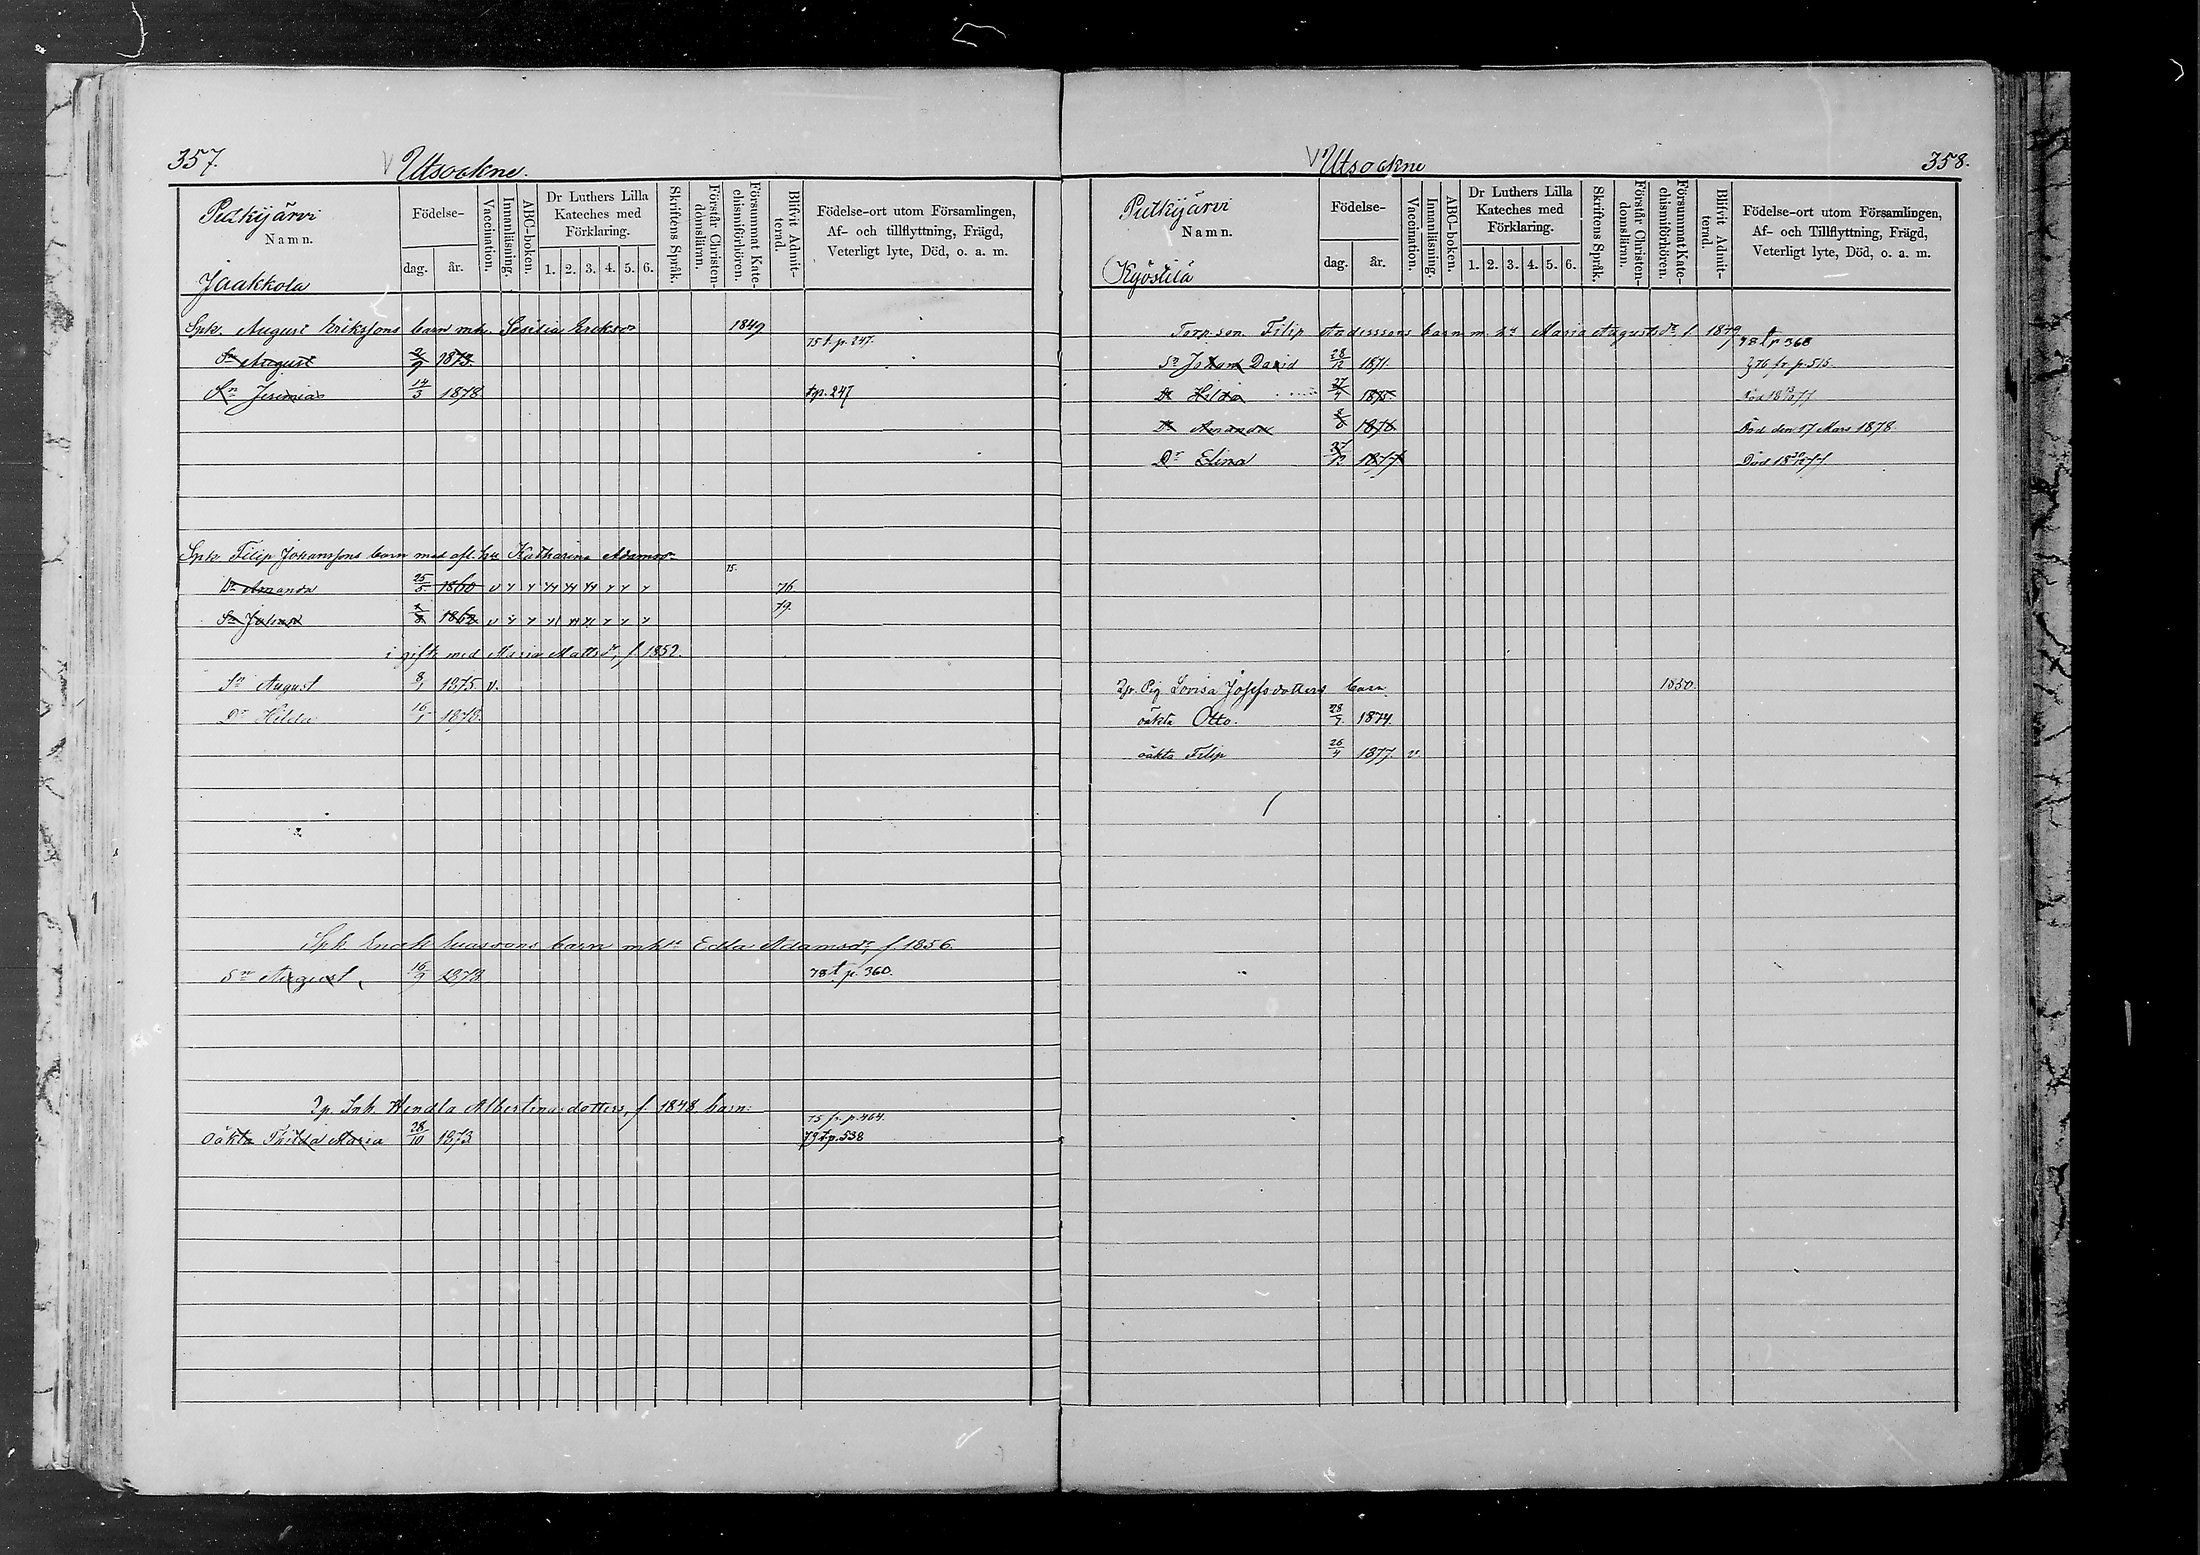 357.
Utsockne.
Putkijärvi
Namn.
Jaakkola
Födelse-
dag. år.
Vaccination.
Innanläsning.
ABC-boken.
Dr Luthers Lilla
Kateches med
Förklaring.
1. 2. 3. 4. 5. 6.
Skriftens Språk.
Förstår Christen-
domsläran.
Försummat Kate-
chismiförhören.
Blifvit Admit-
terad.
Födelse-ort utom Församlingen,
Af- och tillflyttning, Frägd,
Veterligt lyte, Död, o. a. m.
Spk. August Erikssons barn m. hu. Sesilia Eriksdr 1849
75 t. p. 247.
Sn August 2/9 1873.
Sn Jeremias 14/3 1878 t p. 247
Spk. Filip Johanssons barn med afl. hu Katharina Adamsdr
75.
Dr Amanda 25/5 1860 v 76
Sn Johan 1862 v 79.
i gifte med Maria Mattsdr, f. 1852.
Sn August 8/1 1875 v.
Dr Hilda 16/1 1878.
Spk Enok barn m hu Edla Adamsdr, f 1856
Sn August 16/9 1878 78 t p. 360.
Inh. Hendla Albertina dotters, f. 1848 barn:
75 fr. p. 464.
Oäkta Thilda Maria 28/10 1873 79 t p. 538
358.
Utsockne
Putkijärvi
Namn.
Kyöstilä
Födelse-
dag. år.
Vaccination.
Innanläsning.
ABC-boken.
Dr Luthers Lilla
Kateches med
Förklaring.
1. 2. 3. 4. 5. 6.
Skriftens Språk.
Förstår Christen-
domslärnn.
Försummat Kate-
chismiförhören.
Blifvit Admit-
terad.
Födelse-ort utom Församlingen,
Af- och Tillflyttning, Frägd,
Veterligt lyte, Död, o. a. m.
Torp. son Filip Anderssons barn m. hu Maria Augustsdr f. 1849
78 t p 368
Sn Johan David 28/12 1871. 76 fr. p. 515.
Dr Hilda 27/4 1875. Död 18 77
Dr Amanda 1876 Död den 17 Mars 1878
Dr Elina 1877 Död 18 77
Pig Lovisa Josefsdotters barn 1850.
oäkta Otto. 28/9 1874.
oäkta Filip 26/4 1877. v.